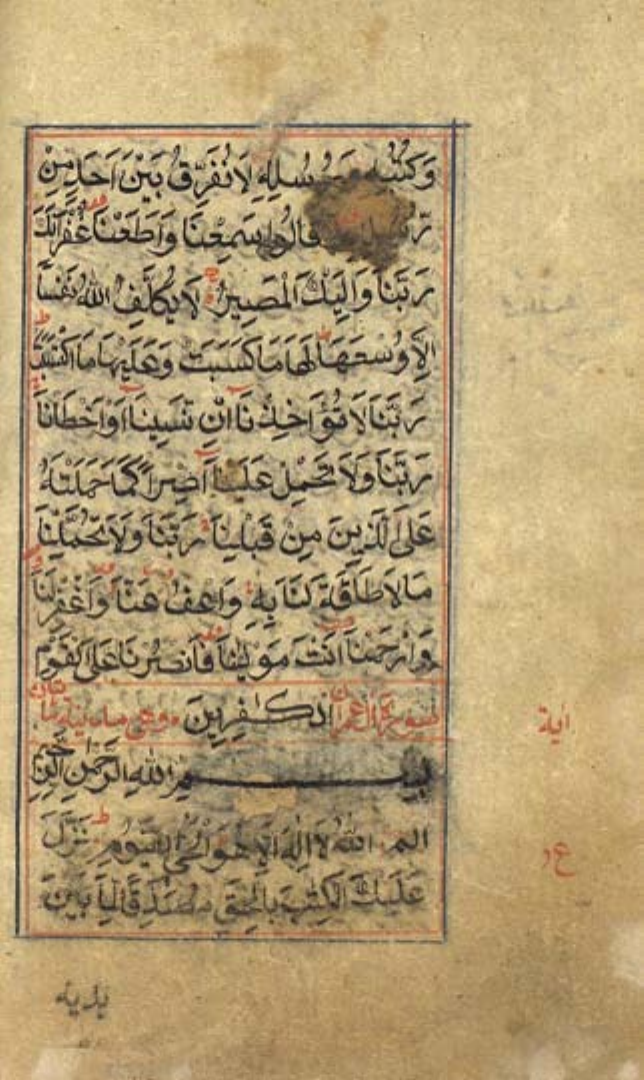 وَكُتُبِهِ وَرُسُلِهِ لَا نُفَرِّقُ بَيْنَ اَحَدٍ مِنْ
رُسُلِهِ قَالُوا سَمِعْنَا وَاَطَعْنَا غُفْرَانَكَ
رَبَّنَا وَاِلَيْكَ الْمَصِيرُ لَا يُكَلِّفُ اللهُ نَفْسًا
اِلَّا وُسْعَهَا لَهَا مَا كَسَبَتْ وَعَلَيْهَا مَا اكْتَسَبَتْ
رَبَّنَا لَا تُؤَاخِذْنَا اِنْ نَسِينَا اَوْ اَخْطَاْنَا
رَبَّنَا وَلَا تَحْمِلْ عَلَيْنَا اِصْرًا كَمَا حَمَلْتَهُ
عَلَى الَّذِينَ مِنْ قَبْلِنَا رَبَّنَا وَلَا تُحَمِّلْنَا
مَا لَا طَاقَةَ لَنَا بِهِ وَاعْفُ عَنَّا وَاغْفِرْ لَنَا
وَارْحَمْنَا اَنْتَ مَوْلٰينَا فَانْصُرْنَا عَلَى الْقَوْمِ
سورة آل عمران الْكٰفِرِينَ وهى مدنية مائتان
اية
بِسْمِ اللهِ الرَّحْمٰنِ الرَّحِيمِ
الم اللهُ لَا اِلٰهَ اِلَّا هُوَ الْحَىُّ الْقَيُّومُ نَزَّلَ
ع
عَلَيْكَ الْكِتٰبَ بِالْحَقِّ مُصَدِّقًا لِمَا بَيْنَ
يديه